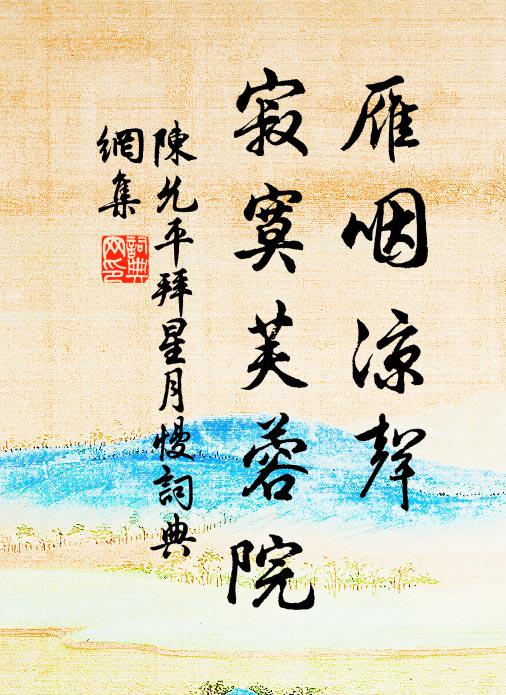 雁咽涼聲
寂寞芙蓉院
陳允平拜星月慢詞典
網集
詞典
网印